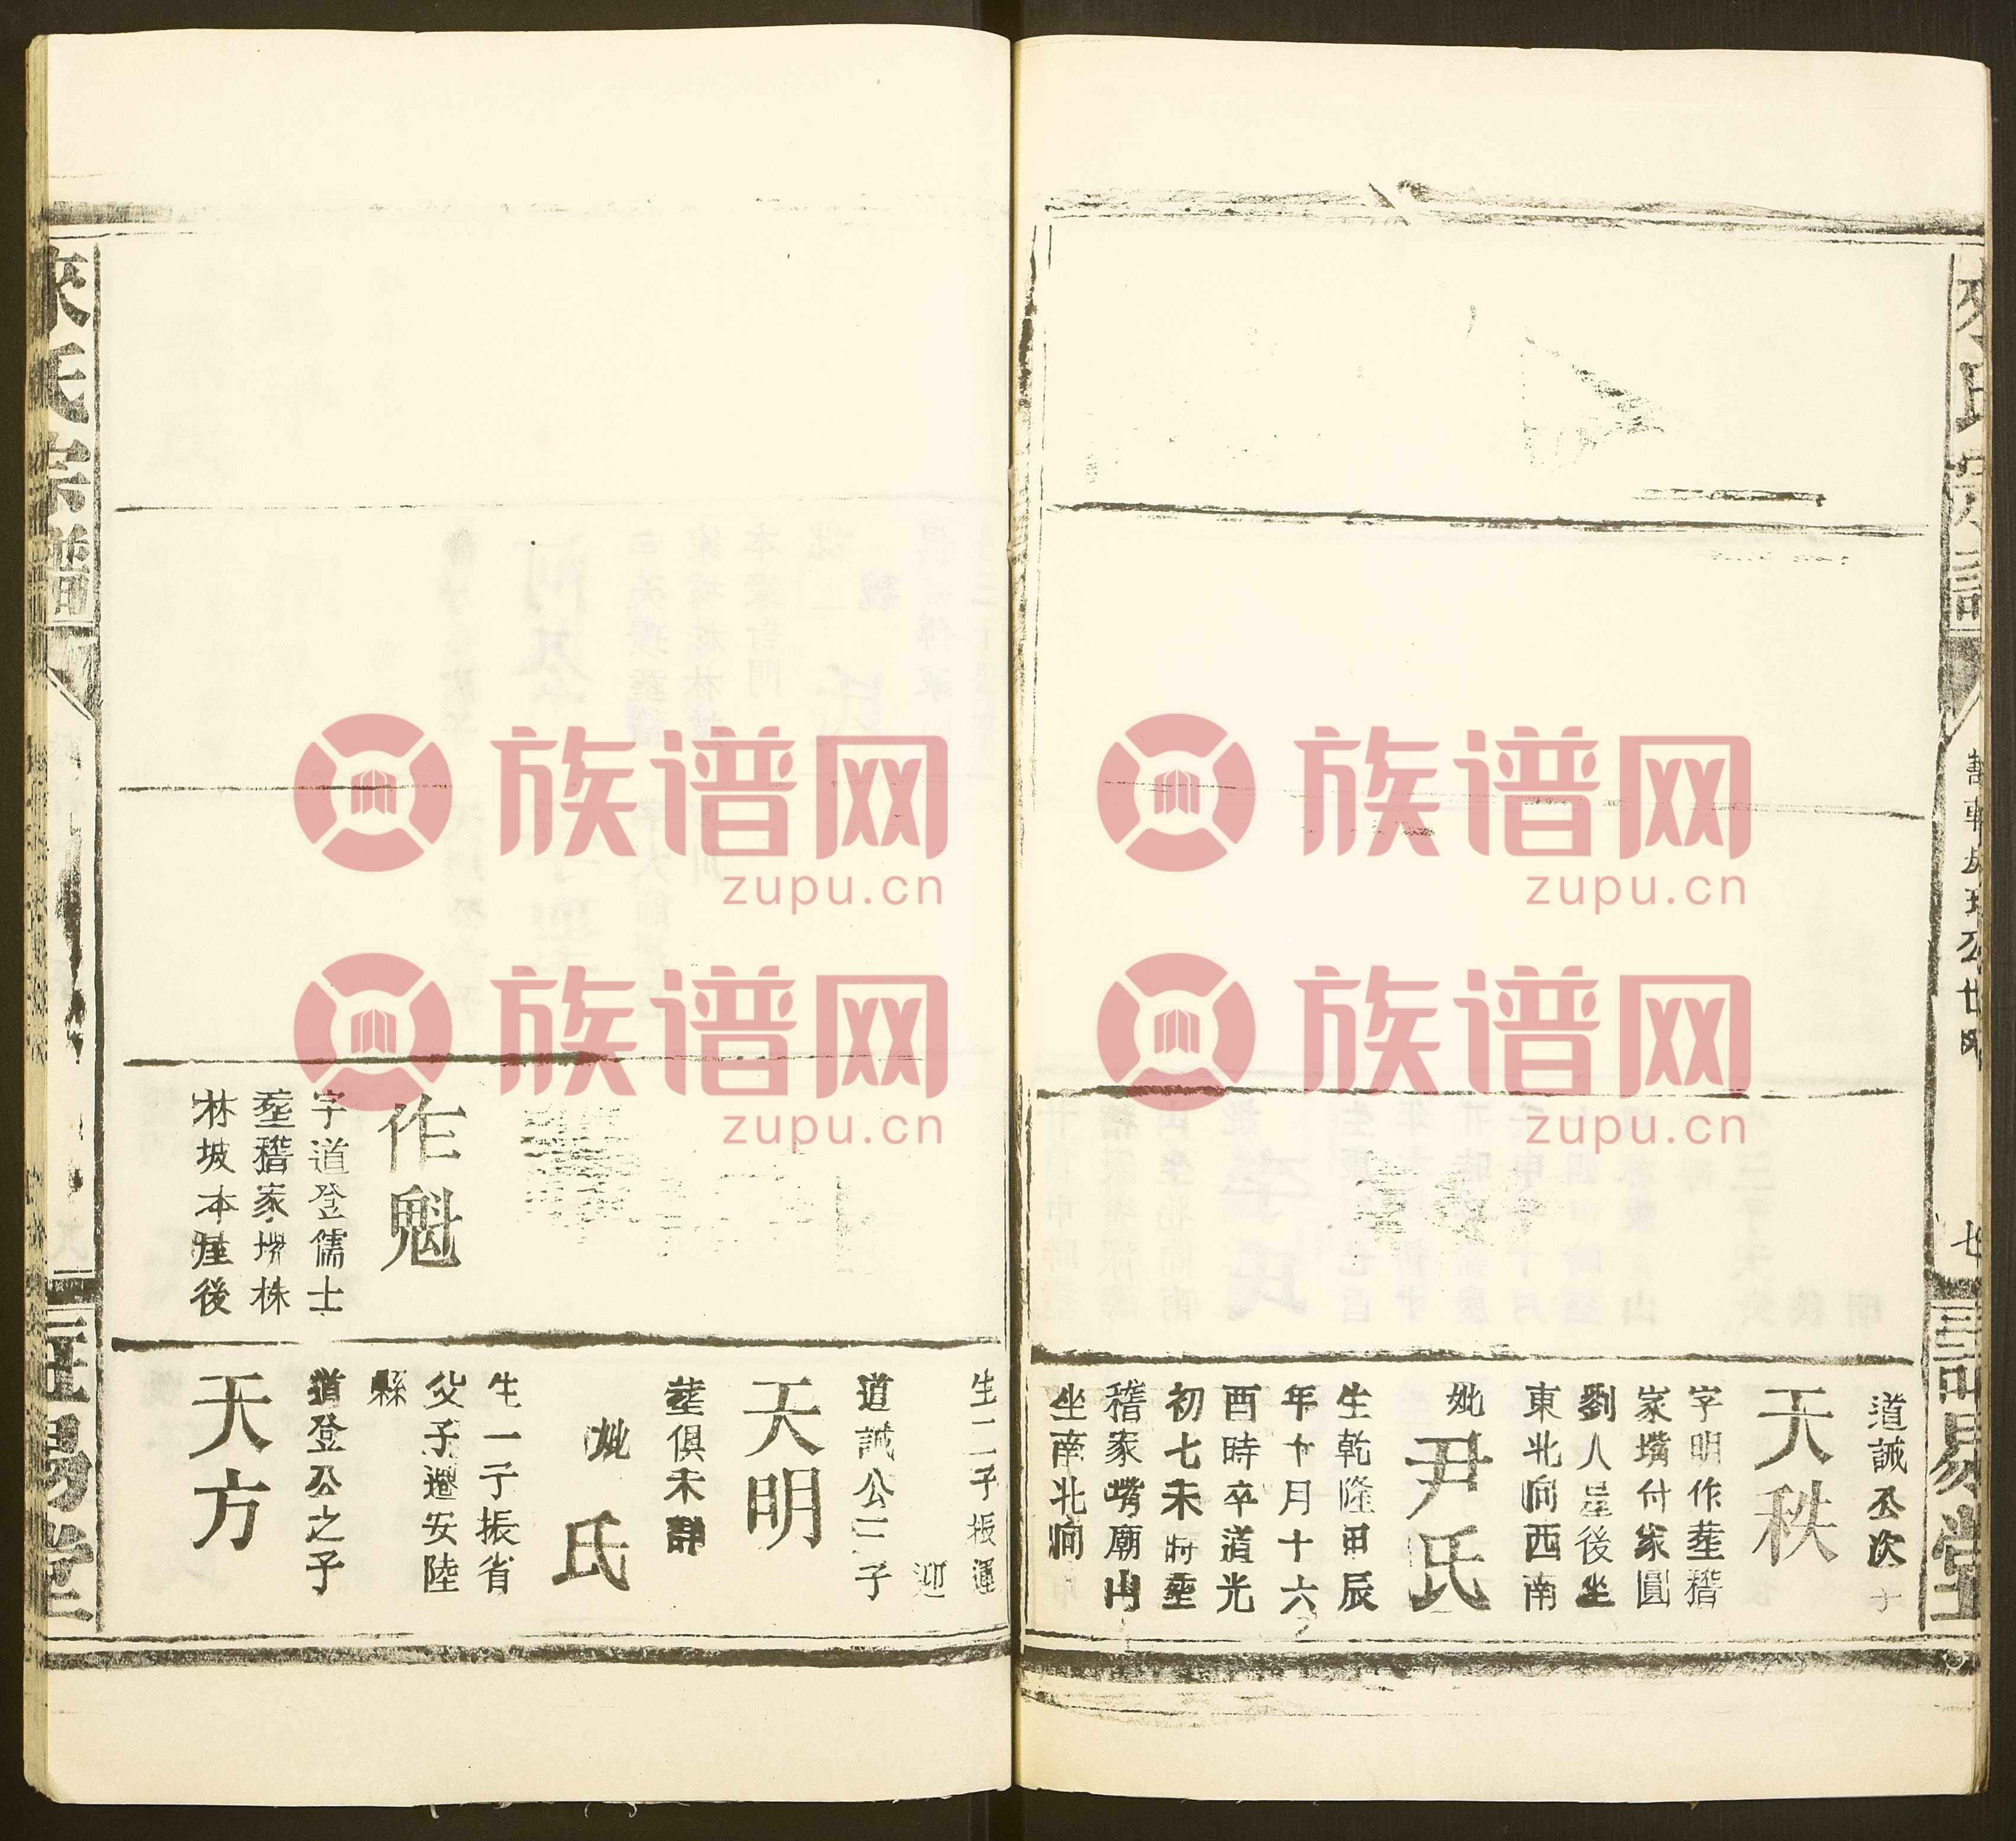 道誠公次子
天秩
字明作塟稽
家嘴付家圓
劉人屋後坐
東北向西南
妣尹氏
生乾隆甲辰
年十月十六
酉時卒道光
初七未時塟
稽家嘴廟山
坐南北向
生二子振運
迎
道誠公三子
天明
塟俱未詳
妣氏
生一子振省
父子遷安陸
縣
作魁
字道登儒士
塟稽家塆株
林坡本屋後
道登公之子
天方
來氏宗譜
三易堂
族谱网
zupu.cn
族谱网
zupu.cn
族谱网
zupu.cn
族谱网
zupu.cn